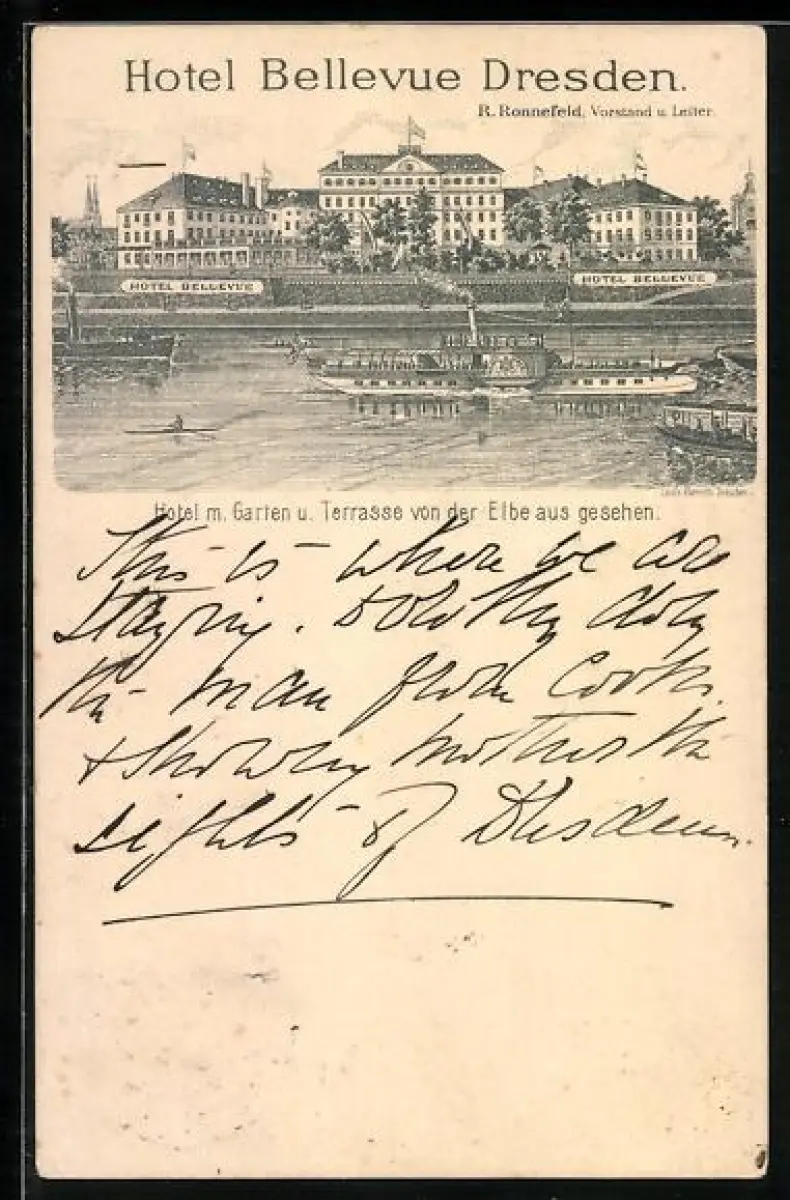 Hotel Bellevue Dresden.
R. Ronnefeld, Vorstand u. Leiter.
HOTEL BELLEVUE
HOTEL BELLEVUE
Hotel m. Garten u. Terrasse von der Elbe aus gesehen.
This is where we are
staying. Dorothy doing
the man from Cooks
& showing Mother the
sights of Dresden.